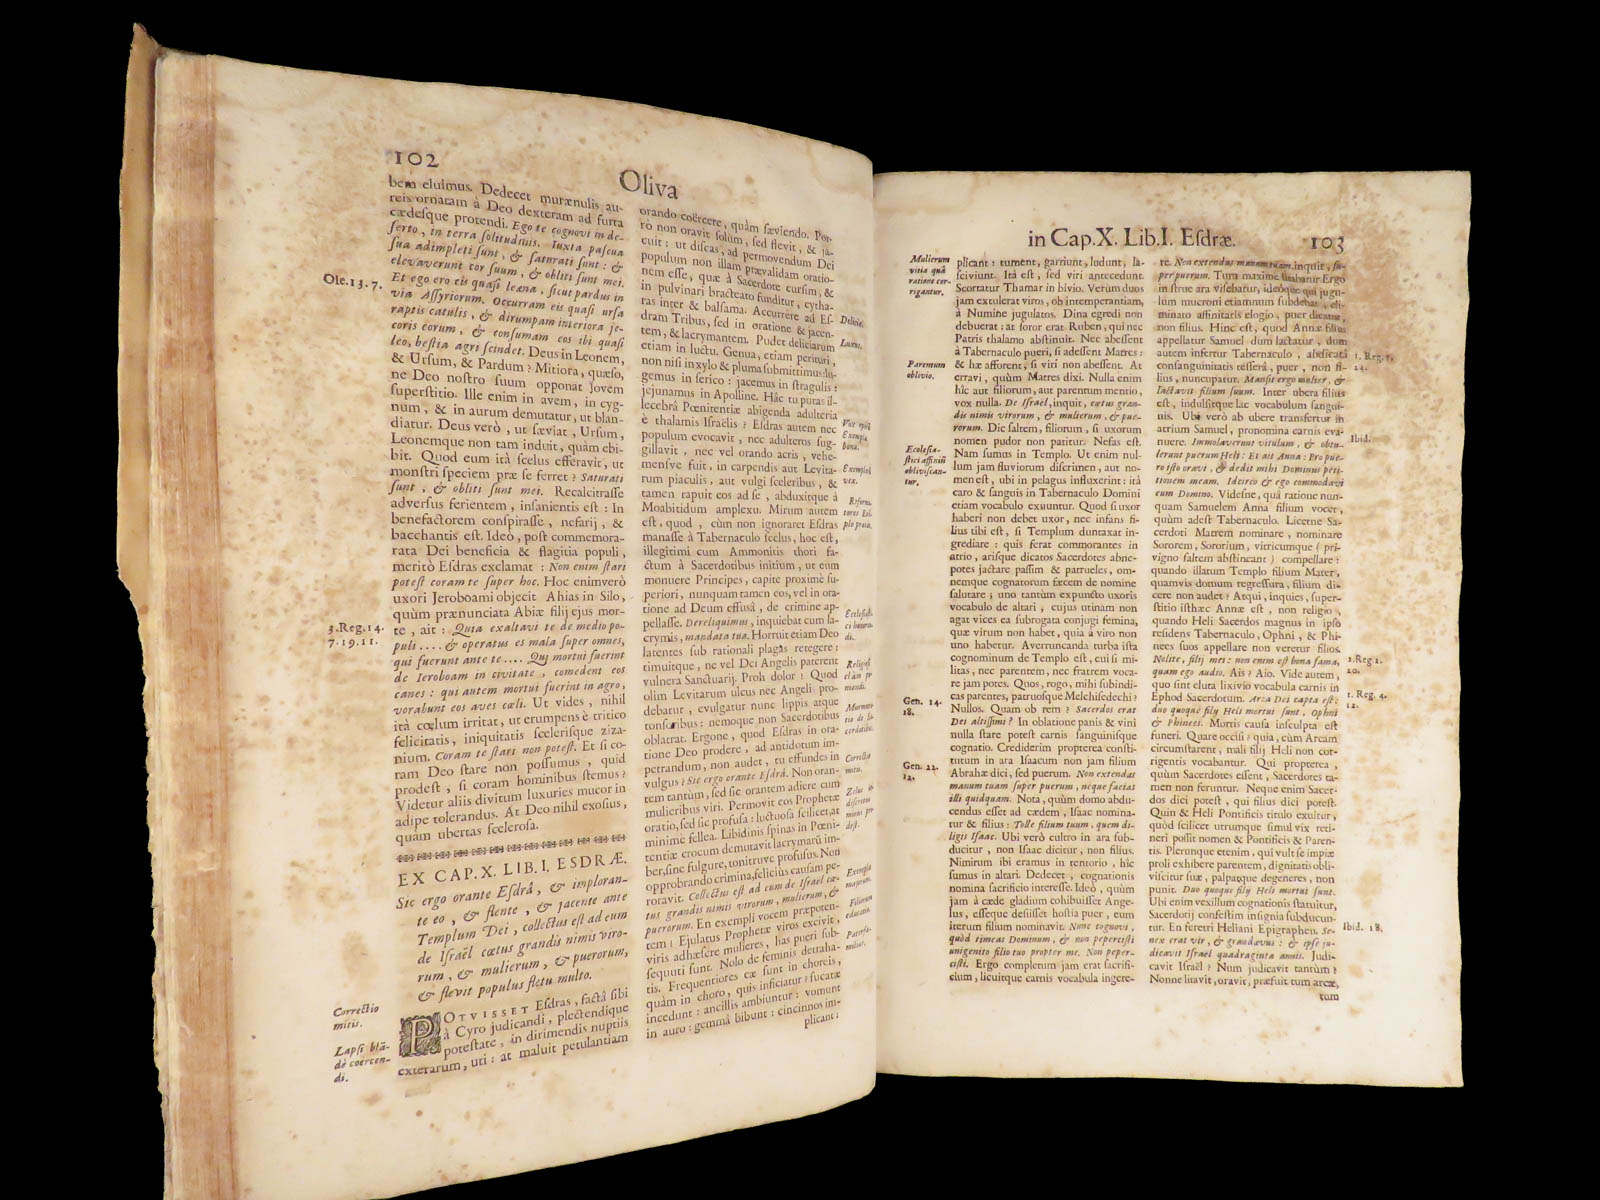 102
Oliva
bem eluimus. Dedecet murænulis au-
reis ornatam à Deo dexteram ad furta
cædesque protendi. Ego te cognovi in de-
serto, in terra solitudinis. Iuxta pascua
sua adimpleti sunt, & saturati sunt: &
elevaverunt cor suum, & obliti sunt mei.
Et ego ero eis quasi leæna, sicut pardus in
via Assyriorum. Occurram eis quasi ursa
raptis catulis, & dirumpam interiora je-
coris eorum, & consumam eos ibi quasi
leo, bestia agri scindet. Deus in Leonem,
& Ursum, & Pardum? Mitiora, quæso,
ne Deo nostro suum opponat Jovem
superstitio. Ille enim in avem, in cyg-
num, & in aurum demutatur, ut blan-
diatur. Deus verò, ut sæviat, Ursum,
Leonemque non tam induit, quàm ebi-
bit. Quod eum ità scelus efferavit, ut
monstri speciem præ se ferret? Saturati
sunt, & obliti sunt mei. Recalcitrasse
adversus ferientem, insanientis est: In
benefactorem conspirasse, nefarij, &
bacchantis est. Ideò, post commemora-
rata Dei beneficia & flagitia populi,
meritò Esdras exclamat: Non enim stari
potest coram te super hoc. Hoc enimverò
uxori Jeroboami objecit Ahias in Silo,
quùm prænunciata Abiæ filij ejus mor-
te, ait: Quia exaltavi te de medio po-
puli .... & operatus es mala super omnes,
qui fuerunt ante te .... Qui mortui fuerint
de Ieroboam in civitate, comedent eos
canes: qui autem mortui fuerint in agro,
vorabunt eos aves cæli. Ut vides, nihil
ità cœlum irritat, ut erumpens è tritico
felicitatis, iniquitatis scelerisque ziza-
nium. Coram te stari non potest. Et si co-
ram Deo stare non possumus, quid
prodest, si coram hominibus stemus?
Videtur aliis divitum luxuries mucor in
adipe tolerandus. At Deo nihil exosius,
quàm ubertas scelerosa.
EX CAP. X. LIB. I. ESDRÆ.
Sic ergo orante Esdrâ, & imploran-
te eo, & flente, & jacente ante
Templum Dei, collectus est ad eum
de Israël cœtus grandis nimis viro-
rum, & mulierum, & puerorum,
& flevit populus fletu multo.
POTVISSET Esdras, factâ sibi
à Cyro judicandi, plectendique
potestate, in dirimendis nuptiis
exterarum, uti: at maluit petulantiam
Ole. 13. 7.
3. Reg. 14.
7. 19. 11.
Correctio
mitis.
Lapsi blã-
dè coërcen-
di.
orando coërcere, quàm sæviendo. Por-
rò non oravit solùm, sed flevit, & ja-
cuit: ut discas, ad permovendum Dei
populum non illam prævalidam oratio-
nem esse, quæ à Sacerdote cursim, &
in pulvinari bracteato funditur, cytha-
ras inter & balsama. Accurrere ad Es-
dram Tribus, sed in oratione & jacen-
tem, & lacrymantem. Pudet deliciarum
etiam in luctu. Genua, etiam perituri,
non nisi in xylo & pluma submittimus: lu-
gemus in serico: jacemus in stragulis:
jejunamus in Apolline. Hâc tu putas il-
lecebrâ Pœnitentiæ abigenda adulteria
è thalamis Israëlis? Esdras autem nec
populum evocavit, nec adulteros sug-
gillavit, nec vel orando acris, vehe-
mensve fuit, in carpendis aut Levita-
rum piaculis, aut vulgi sceleribus, &
tamen rapuit eos ad se, abduxitque à
Moabitidum amplexu. Mirum autem
est, quod, cùm non ignoraret Esdras
manasse à Tabernaculo scelus, hoc est,
illegitimi cum Ammonitis thori fa-
ctum à Sacerdotibus initium, ut eum
monuere Principes, capite proximè su-
periori, nunquam tamen eos, vel in ora-
tione ad Deum effusâ, de crimine ap-
pellasse. Dereliquimus, inquiebat cum la-
crymis, mandata tua. Horruit etiam Deo
latentes sub rationali plagas retegere:
timuitque, ne vel Dei Angelis paterent
vulnera Sanctuarij. Proh dolor! Quod
olim Levitarum ulcus nec Angeli pro-
debatur, evulgatur nunc lippis atque
tonsoribus: nemoque non Sacerdotibus
oblatrat. Ergone, quod Esdras in ora-
tione Deo prodere, ad antidotum im-
petrandum, non audet, tu effundes in
vulgus? Sic ergo orante Esdrâ. Non oran-
tem tantùm, sed sic orantem adiere cum
mulieribus viri. Permovit eos Prophetæ
oratio, sed sic profusa: luctuosa scilicet, at
minimè fellea. Libidinis spinas in Pœni-
tentiæ crocum demutavit lacrymarũ im-
ber, sine fulgure, tonitruve profusus. Non
opprobrando crimina, feliciùs causam pe-
roravit. Collectus est ad eum de Israel cœ-
tus grandis nimis virorum, mulierum, &
puerorum. En exempli vocem præpoten-
tem! Ejulatus Prophetæ viros excivit,
viris adhæsere mulieres, has pueri sub-
sequuti sunt. Nolo de feminis detraha-
tis. Frequentiores eæ sunt in choreis,
quàm in choro, quis inficiatur? fucatæ
incedunt: ancillis ambiuntur: vomunt
in auro: gemmâ bibunt: cincinnos im-
plicant:
Deliciæ.
Luxus.
Exempla
bona.
Exempli
vox.
Correctio
mitis.
in Cap. X. Lib. I. Esdræ.
103
Mulierum
vitia quâ
ratione cor-
rigantur.
Parentum
oblivio.
Ecclesia-
stici affiniũ
obliviscan-
tur.
Gen. 14.
18.
Gen. 22.
12.
plicant: tument, garriunt, ludunt, la-
sciviunt. Ità est, sed viri antecedunt.
Scortatur Thamar in bivio. Verùm duos
jam extulerat viros, ob intemperantiam,
à Numine jugulatos. Dina egredi non
debuerat: at soror erat Ruben, qui nec
Patris thalamo abstinuit. Nec abessent
à Tabernaculo pueri, si adessent Matres:
& hæ afforent, si viri non abessent. At
erravi, quùm Matres dixi. Nulla enim
hîc aut filiorum, aut parentum mentio,
vox nulla. De Israël, inquit, cœtus gran-
dis nimis virorum, & mulierum, & pue-
rorum. Dic saltem, filiorum, si uxorum
nomen pudor non patitur. Nefas est.
Nam sumus in Templo. Ut enim nul-
lum jam fluviorum discrimen, aut no-
men est, ubi in pelagus influxerint: ità
caro & sanguis in Tabernaculo Domini
etiam vocabulo exuuntur. Quod si uxor
haberi non debet uxor, nec infans fi-
lius tibi est, si Templum duntaxat in-
grediare: quis ferat commorantes in
atrio, arisque dicatos Sacerdotes abne-
potes jactare passim & patrueles, om-
nemque cognatorum fæcem de nomine
salutare; uno tantùm expuncto uxoris
vocabulo de altari, cujus utinam non
agat vices ea subrogata conjugi femina,
quæ virum non habet, quia à viro non
uno habetur. Averruncanda turba ista
cognominum de Templo est, cui si mi-
litas, nec parentem, nec fratrem voca-
re jam potes. Quos, rogo, mihi subindi-
cas parentes, patruosque Melchisedechi?
Nullos. Quam ob rem? Sacerdos erat
Dei altissimi? In oblatione panis & vini
nulla stare potest carnis sanguinisque
cognatio. Crediderim propterea consti-
tutum in ara Isaacum non jam filium
Abrahæ dici, sed puerum. Non extendas
manum tuam super puerum, neque facias
illi quidquam. Nota, quùm domo abdu-
cendus esset ad cædem, Isaac nomina-
tur & filius: Tolle filium tuum, quem di-
ligis Isaac. Ubi verò cultro in ara sub-
ducitur, non Isaac dicitur, non filius.
Nimirum ibi eramus in tentorio, hîc
sumus in altari. Dedecet, cognationis
nomina sacrificio interesse. Ideò, quùm
jam à cæde gladium cohibuisset Ange-
lus, esseque desiisset hostia puer, eum
iterum filium nominavit. Nunc cognovi,
quòd timeas Dominum, & non pepercisti
unigenito filio tuo propter me. Non peper-
cisti. Ergo completum jam erat sacrifi-
cium, licuitque carnis vocabula ingere-
re. Non extendas manum tuam, inquit, su-
per puerum. Tum maximè litabatur. Ergo
in strue ara visebatur, ideòque qui jugu-
lum mucroni etiamnum subdebat, eli-
minato affinitatis elogio, puer dicatur,
non filius. Hinc est, quod Annæ filius
appellatur Samuel dum lactatur, dum
autem infertur Tabernaculo, abdicatâ
consanguinitatis tesserâ, puer, non fi-
lius, nuncupatur. Mansit ergo mulier, &
lactavit filium suum. Inter ubera filius
est, indulsitque lac vocabulum sangui-
nis. Ubi verò ab ubere transfertur in
atrium Samuel, pronomina carnis eva-
nuere. Immolaverunt vitulum, & obtu-
lerunt puerum Heli: Et ait Anna: Pro pue-
ro isto oravi, & dedit mihi Dominus peti-
tionem meam. Idcirco & ego commodavi
eum Domino. Videsne, quâ ratione nun-
quam Samuelem Anna filium vocet,
quùm adest Tabernaculo. Licetne Sa-
cerdoti Matrem nominare, nominare
Sororem, Sororium, vitricumque (pri-
vigno saltem abstineant) compellare:
quando illatum Templo filium Mater,
quamvis domum regressura, filium di-
cere non audet? Atqui, inquies, super-
stitio isthæc Annæ est, non religio,
quando Heli Sacerdos magnus in ipso
residens Tabernaculo, Ophni, & Phi-
nees suos appellare non veretur filios.
Nolite, filij mei: non enim est bona fama,
quam ego audio. Ais? Aio. Vide autem,
quo sint eluta lixivio vocabula carnis in
Ephod Sacerdotum. Arca Dei capta est:
duo quoque filij Heli mortui sunt, Ophni
& Phinees. Mortis causa insculpta est
funeri. Quare occisi? quia, cùm Arcam
circumstarent, mali filij Heli non cor-
rigentis vocabantur. Qui propterea,
quùm Sacerdotes essent, Sacerdotes ta-
men non feruntur. Neque enim Sacer-
dos dici potest, qui filius dici potest.
Quin & Heli Pontificis titulo exuitur,
quòd scilicet utrumque simul vix reti-
neri possit nomen & Pontificis & Paren-
tis. Plerunque etenim, qui vult se impiæ
proli exhibere parentem, dignitatis obli-
viscitur suæ, palpatque degeneres, non
punit. Duo quoque filij Heli mortui sunt.
Ubi enim vexillum cognationis statuitur,
Sacerdotij confestim insignia subducun-
tur. En feretri Heliani Epigraphen. Se-
nex erat vir, & grandævus: & ipse ju-
dicavit Israël quadraginta annis. Judi-
cavit Israël? Num judicavit tantùm?
Nonne litavit, oravit, præfuit tum arcæ,
tum
1. Reg. 1.
24.
Ibid.
1. Reg. 2.
20.
1. Reg. 4.
12.
Ibid. 18.